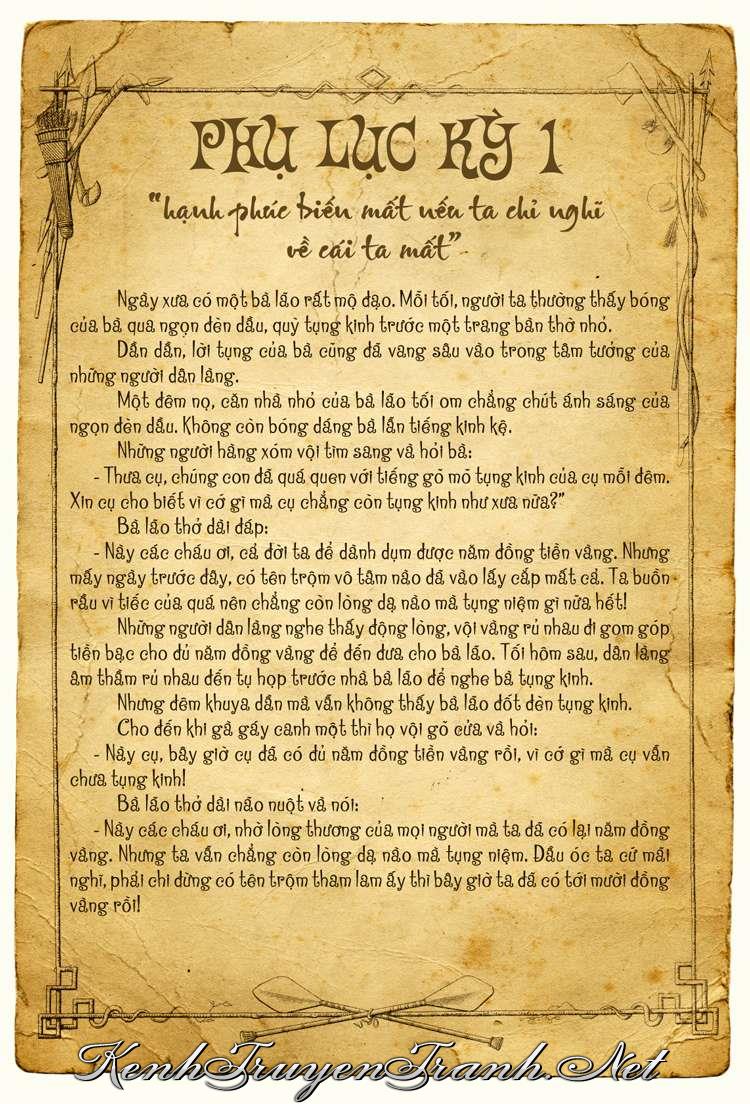 PHỤ LỤC KỲ 1
"hạnh phúc biến mất nếu ta chỉ nghĩ
về cái ta mất"
Ngày xưa có một bà lão rất mộ đạo. Mỗi tối, người ta thường thấy bóng
của bà qua ngọn đèn dầu, quỳ tụng kinh trước một trang bàn thờ nhỏ.
Dần dần, lời tụng của bà cũng đã vang sâu vào trong tâm tưởng của
những người dân làng.
Một đêm nọ, căn nhà nhỏ của bà lão tối om chẳng chút ánh sáng của
ngọn đèn dầu. Không còn bóng dáng bà lẫn tiếng kinh kệ.
Những người hàng xóm vội tìm sang và hỏi bà:
- Thưa cụ, chúng con đã quá quen với tiếng gõ mõ tụng kinh của cụ mỗi đêm.
Xin cụ cho biết vì cớ gì mà cụ chẳng còn tụng kinh như xưa nữa?"
Bà lão thở dài đáp:
- Này các cháu ơi, cả đời ta để dành dụm được năm đồng tiền vàng. Nhưng
mấy ngày trước đây, có tên trộm vô tâm nào đã vào lấy cắp mất cả. Ta buồn
rầu vì tiếc của quá nên chẳng còn lòng dạ nào mà tụng niệm gì nữa hết!
Những người dân làng nghe thấy động lòng, vội vàng rủ nhau đi gom góp
tiền bạc cho đủ năm đồng vàng để đến đưa cho bà lão. Tối hôm sau, dân làng
âm thầm rủ nhau đến tụ họp trước nhà bà lão để nghe bà tụng kinh.
Nhưng đêm khuya dần mà vẫn không thấy bà lão đốt đèn tụng kinh.
Cho đến khi gà gáy canh một thì họ vội gõ cửa và hỏi:
- Này cụ, bây giờ cụ đã có đủ năm đồng tiền vàng rồi, vì cớ gì mà cụ vẫn
chưa tụng kinh!
Bà lão thở dài não nuột và nói:
- Này các cháu ơi, nhờ lòng thương của mọi người mà ta đã có lại năm đồng
vàng. Nhưng ta vẫn chẳng còn lòng dạ nào mà tụng niệm. Đầu óc ta cứ mãi
nghĩ, phải chi đừng có tên trộm tham lam ấy thì bây giờ ta đã có tới mười đồng
vàng rồi!
KenhTruyenTranh.Net